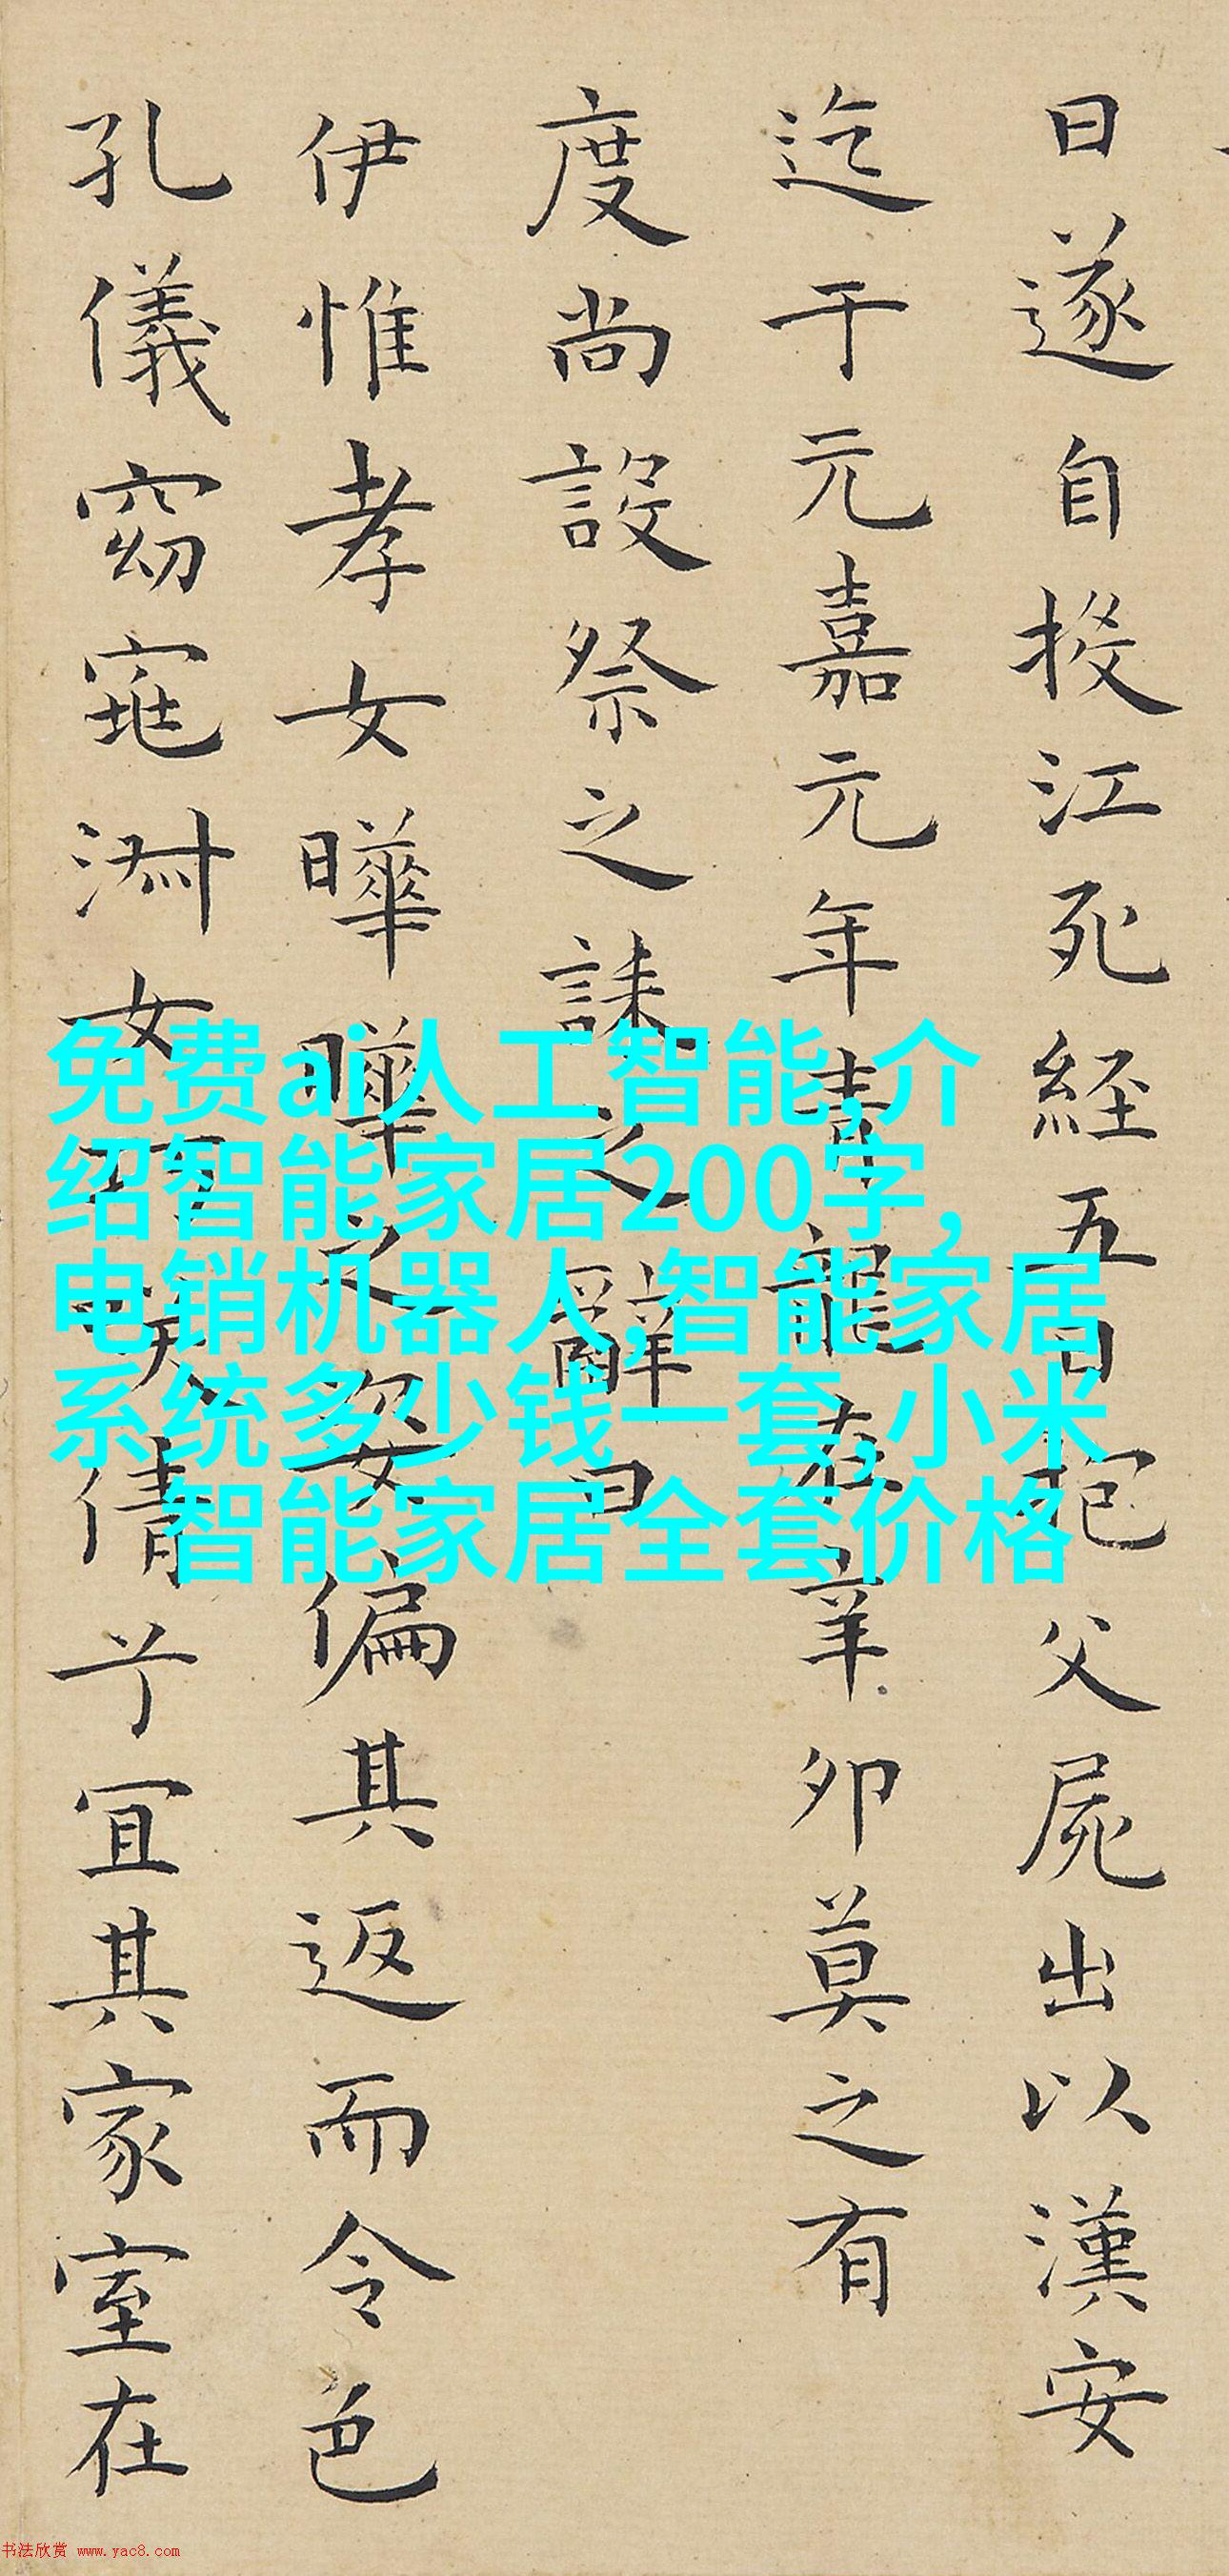 日遂自投江死経五日抱父屍出以漢安
迄于元嘉元年青龍在辛卯莫之有
度尚設祭之誄之辭曰
伊惟孝女曄曄之姿偏其返而令色
孔儀窈窕淑女巧笑倩兮宜其家室在
免费ai人工智能,介
绍智能家居200字,
电销机器人,智能家居
系统多少钱一套,小米
智能家居全套价格
书法欣赏 www.yac8.com